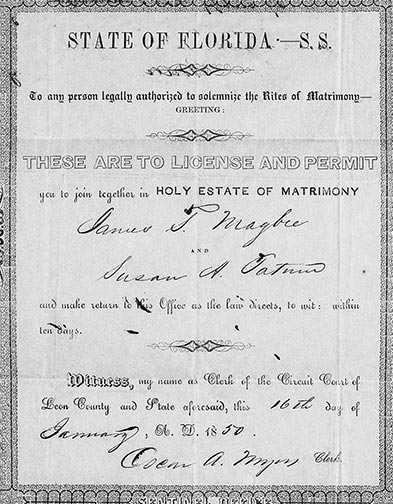 STATE OF FLORIDA—S. S.
To any person legally authorized to solemnize the Rites of Matrimony—
GREETING:
THESE ARE TO LICENSE AND PERMIT
you to join together in HOLY ESTATE OF MATRIMONY
James T. Magbee
AND
Susan A. Tatum
and make return to this Office as the law directs, to wit: within
ten days.
Witness, my name as Clerk of the Circuit Court of
Leon County and State aforesaid, this 16th day of
January, A. D. 1850.
A. Myers Clerk.
SENTINEL OFFICE